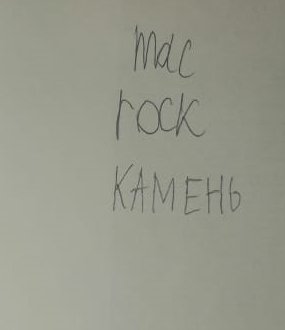 mac
rock
КАМЕНЬ